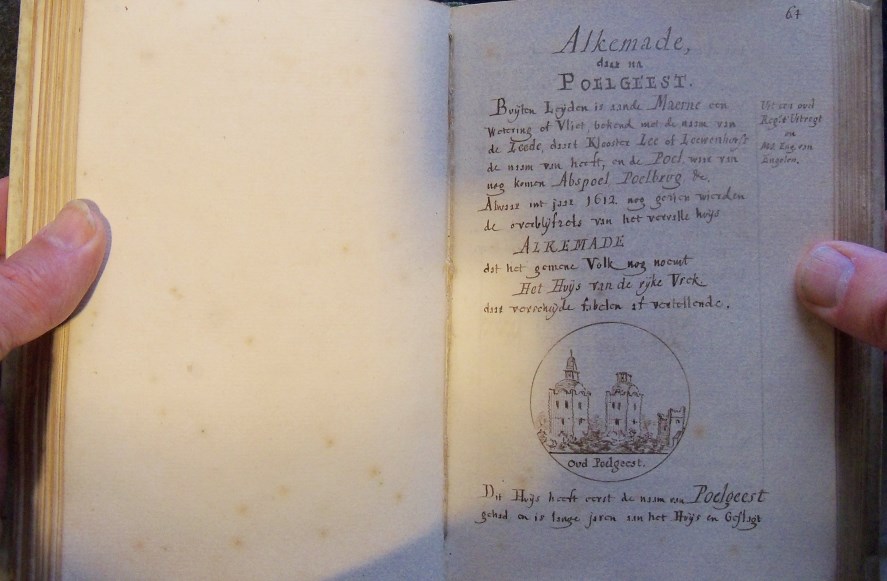 67
Alkemade,
daar na
POELGEEST.
Buÿten Leÿden is aande Maerne een
Wetering of Vliet, bekend met de naam van
de Leede, daart Klooster Lee of Leewenhorst
de naam van heeft, en de Poel, waar van
nog komen Abspoel Poelbrug &c.
Alwaar int jaar 1612 nog gesien wierden
de overblÿfzels van het vervalle huÿs
ALKEMADE
dat het gemene Volk nog noemt
Het Huÿs van de rÿke Vrek
daar verscheÿde fabelen af vertellende.
Uit een oud
Regt Utregt
en
van
Engelen.
Oud Poelgeest.
Dit Huÿs heeft eerst de naam van Poelgeest
gehad en is lange jaren aan het Huÿs en Geslagt